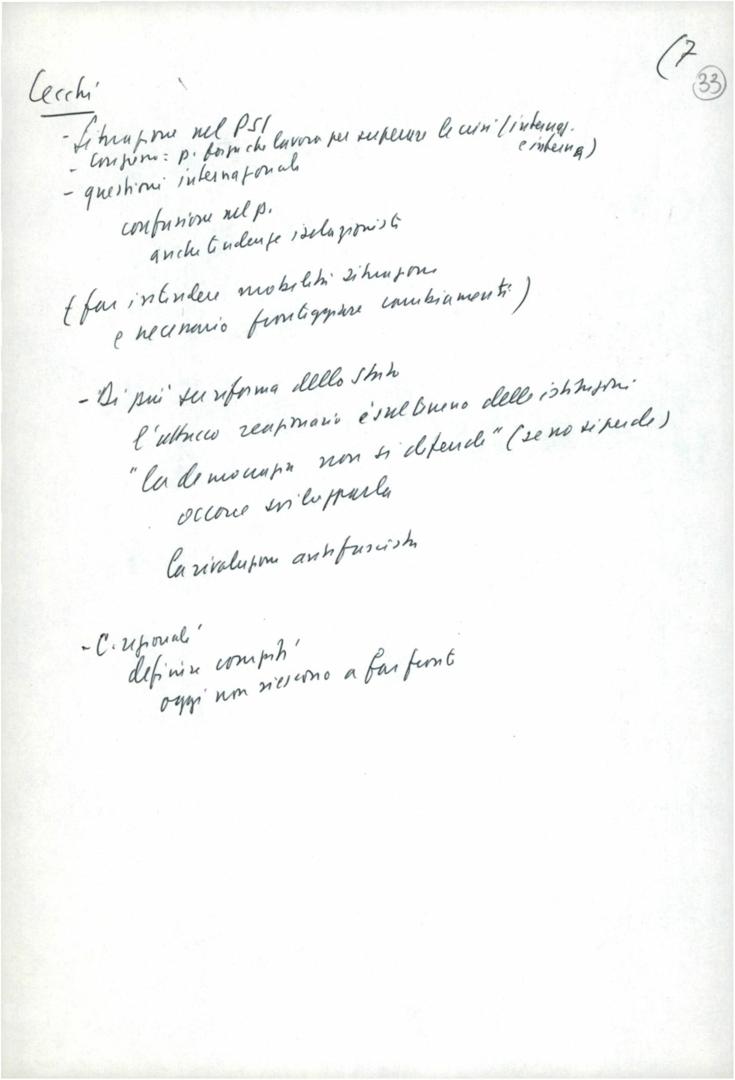 (7
33
Cecchi
- Situazione nel PSI
- Congresso: p. forza che lavora per superare le crisi (internaz.
e interna)
- questioni internazionali
confusione nel p.
anche tendenze isolazionisti
(far intendere mobilità situazione
e necessario fronteggiare cambiamenti)
- Di più su riforma dello Stato
l'attacco reazionario è sul terreno delle istituzioni
"la democrazia non si difende" (se no si perde)
occorre svilupparla
la rivoluzione antifascista
- C. regionali
definire compiti
oggi non riescono a far front